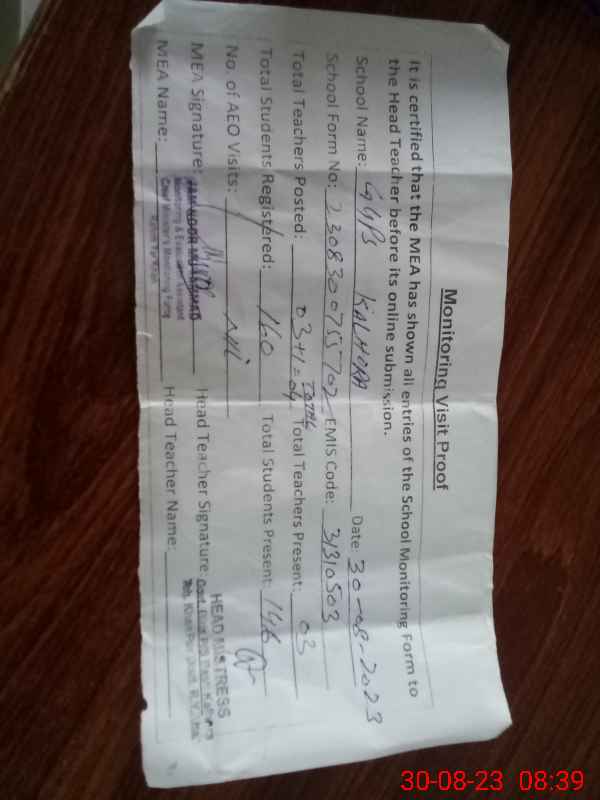 Monitoring Visit Proof
It is certified that the MEA has shown all entries of the School Monitoring Form to
the Head Teacher before its online submission.
School Name: GGPS KALHORA Date: 30-08-2023
School Form No: EMIS Code: 31310503
Total Teachers Posted: 03+1=04 TOTAL Total Teachers Present: 03
Total Students Registered: 160 Total Students Present: 146
No. of AEO Visits: Nil
MEA Signature: Head Teacher Signature
MEA Name: Head Teacher Name:
JAM NOOR MUHAMMAD
Monitoring & Evaluation Assistant
Chief Minister's Monitoring Force
HEAD MISTRESS
30-08-23 08:39